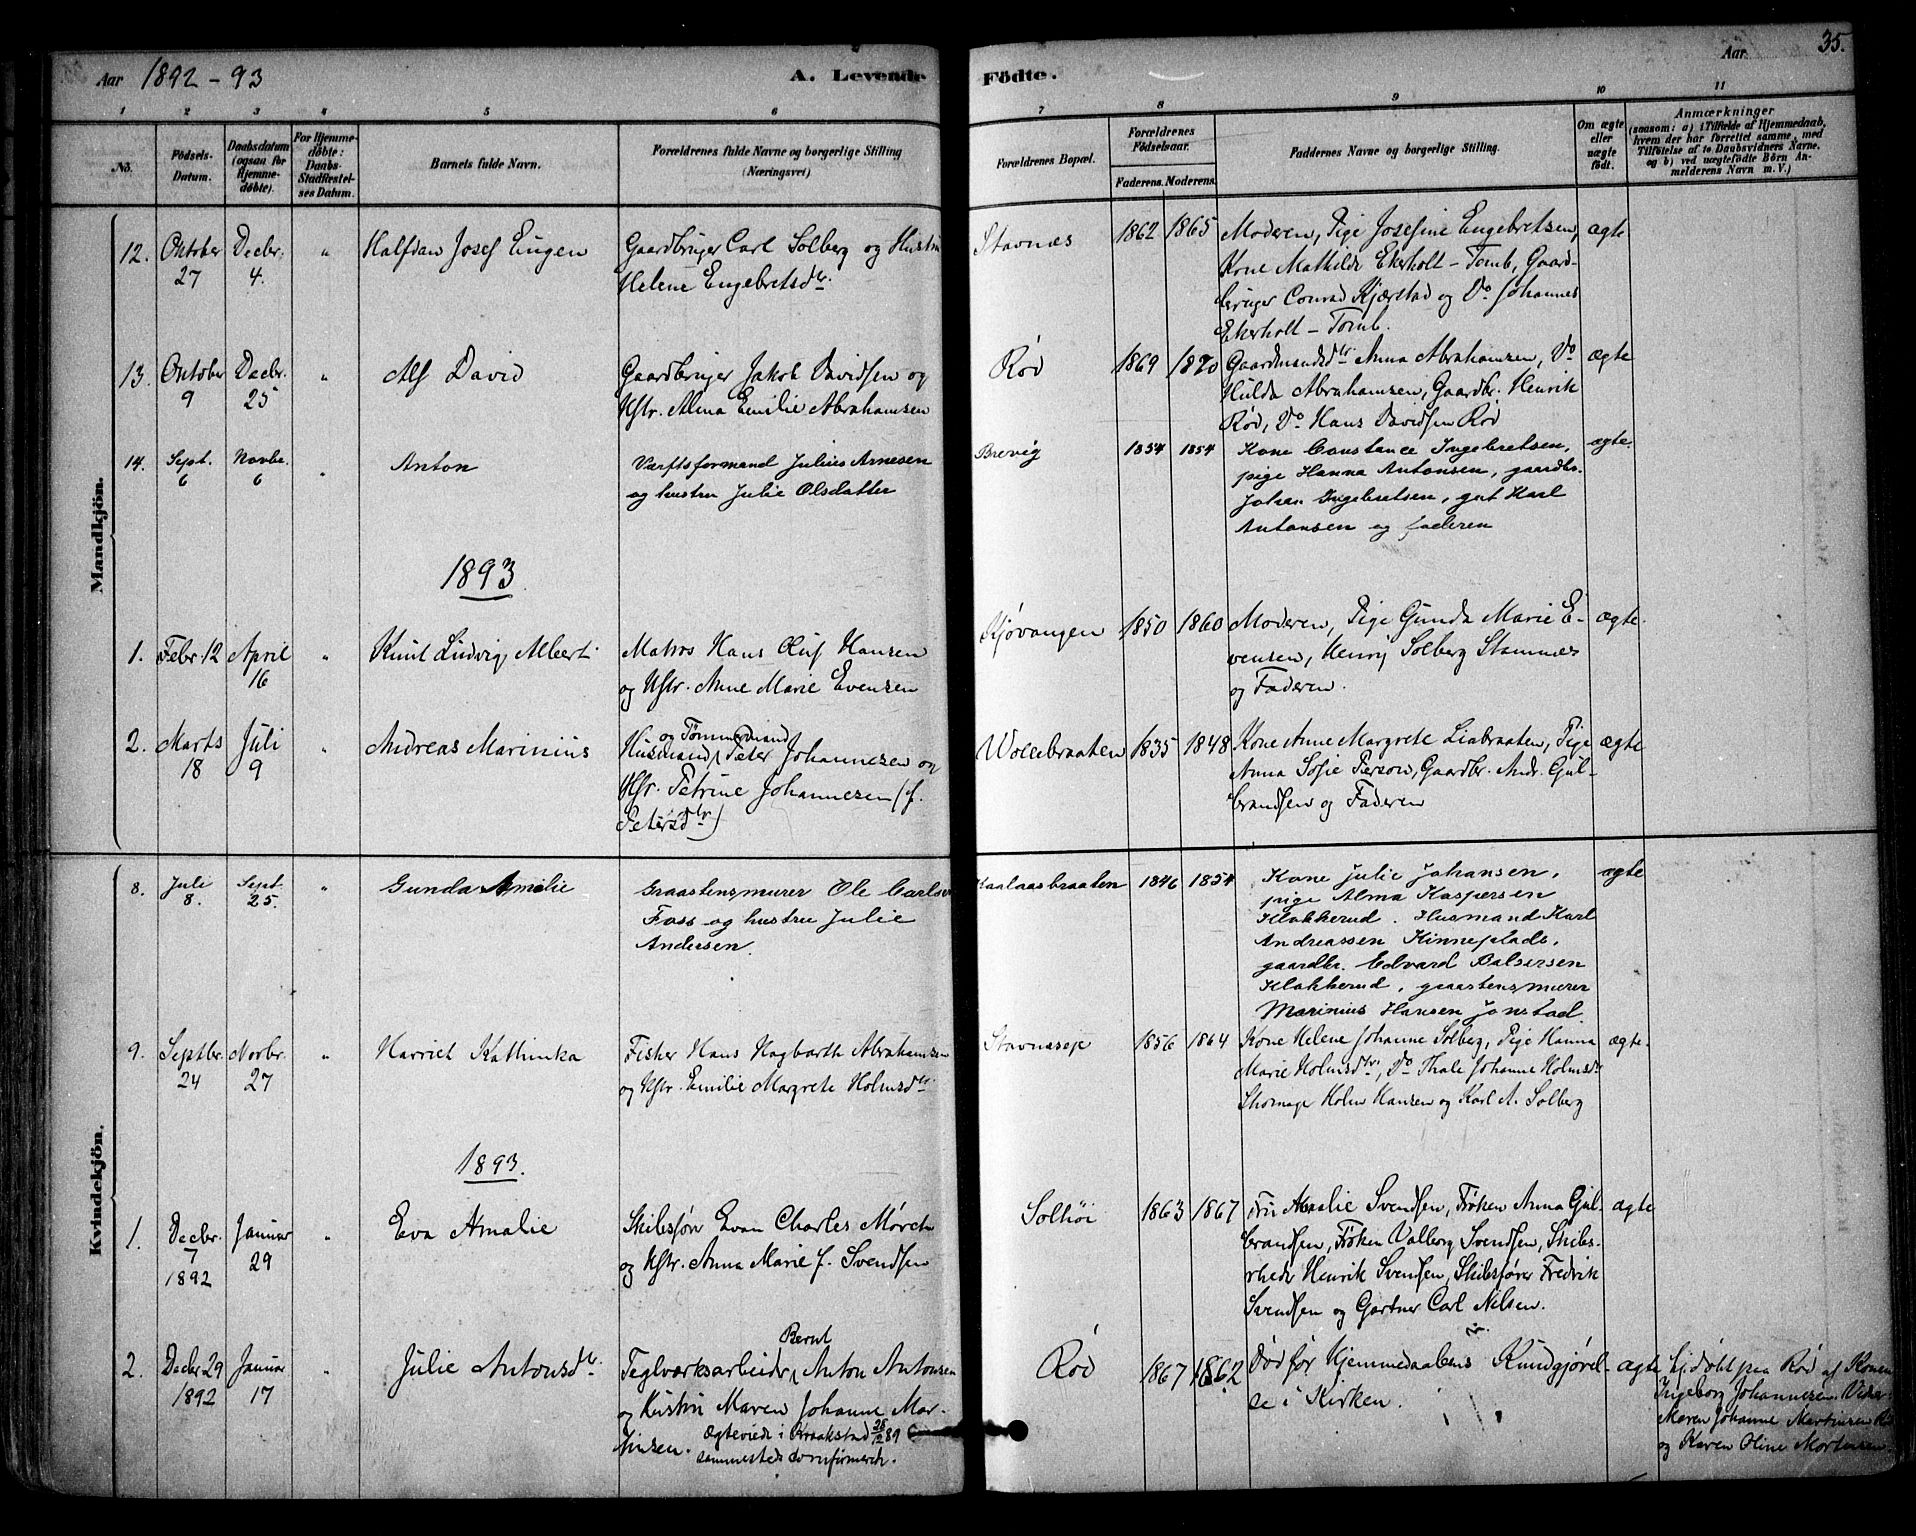 Aar 1892-93
A. Levende Födte.
Aar
35.
1 2 3 4 5 6 7 8 9 10 11
No.
Födsels-Datum.
Daabsdatum (ogsaa for Hjemmedöbte).
For Hjemmedöbte: Daabs Stadfæstelses Datum.
Barnets fulde Navn.
Forældrenes fulde Navne og borgerlige Stilling (Næringsvei)
Forældrenes Bopæl.
Forældrenes Födselsaar.
Faderens. Moderens.
Faddernes Navne og borgerlige Stilling.
Om ægte eller uægte födt.
Anmærkninger
(saasom: a) i Tilfælde af Hjemmedaab, hvem der har forrettet samme, med Tilföielse af to Daabsvidners Navne, og b) ved uægtefödte Börn Anmelderens Navn m. V.)
Mandkjön.
12. Oktober 27 Decbr. 4. " Halfdan Josef Eugen
Gaardbruger Carl Solberg og Hustru
Helene Engebretsdtr.
Stavnæs 1862 1865
Moderen, Pige Josefine Engebretsen,
Kone Mathilde Ekerholt - Tomb, Gaard-
bruger Conrad Kjærstad og Do Johannes
Ekerholt - Tomb.
ægte
13. Oktober 9 Decbr. 25 " Alf David
Gaardbruger Jakob Davidsen og
Hstr. Alma Emilie Abrahamsen
Rød 1869 1870
Gaardmandsdtr. Anna Abrahamsen, Do
Hulda Abrahamsen, Gaardbr. Henrik
Rød, Do Hans Davidsen Rød
ægte
14. Sept. 6 Novbr. 6 " Anton
Værftsformand Julius Arnesen
og hustru Julie Olsdatter
Brevig 1854 1854
Kone Constance Ingebretsen,
pige Hanna Antonsen, gaardbr.
Johan Ingebretsen, gut Karl
Antonsen og faderen
ægte.
1893
1. Febr. 12 April 16 " Knut Ludvig Albert
Matros Hans Oluf Hansen
og Hstr. Anne Marie Evensen
Kjøvangen 1850 1860
Moderen, Pige Gunda Marie E-
vensen, Henrij Solberg Stamnes
og Faderen.
ægte.
2. Marts 18 Juli 9 " Andreas Marinius
og Tømmermand
Husmand Peter Johannesen og
Hstr. Petrine Johannesen (f.
Petersdtr)
Wollebraaten 1835 1848
Kone Anne Margrete Liabraaten, Pige
Anna Sofie Person, Gaardbr. Andr. Gul-
brandsen og Faderen
ægte
Kvindekjön.
8. Juli 8. Sept. 25. " Gunda Amalie
Graastensmurer Ole Carlsen
Foss og hustru Julie
Andersen.
Kaalaasbraaten 1846 1854
Kone Julie Johansen,
pige Alma Kaspersen
Klokkerud. Husmand Karl
Andreassen Kinneplads,
gaardbr. Edvard Balsersen
Klokkerud, graastensmurer
Marinius Hansen Jonstad.
ægte
9. Septbr. 24 Novbr. 27 " Harriet Kathinka
Fisker Hans Hagbarth Abrahamsen
og Hstr. Emilie Margrete Holmsdtr.
1856 1864
Kone Helene Johanne Solberg, Pige Hanna
Marie Holmsdtr, Do Thale Johanne Holmsdtr
Holm Hansen og Karl A. Solberg
ægte.
1893.
1. Decbr. 7 1892 Januar 29 " Eva Amalie
Skibsfør. Evan Charles Mørch
og Hstr. Anna Marie f. Svendsen
Solhöi 1863 1867
Fru Amalie Svendsen, Frøken Anna Gul-
brandsen, Frøken Valborg Svendsen, Skibs-
rheder Henrik Svendsen, Skibsfører Fredrik
Svendsen og Gartner Carl Nilsen.
ægte
2. Decbr 29 1892 Januar 17 " Julie Antonsdtr.
Bernt
Teglværksarbeider Anton Antonsen
og Hustru Maren Johanne Mar-
tinsen. Ægteviede i Kraakstad 28/12 89
sammesteds
Rød 1867 1862
Død før Hjemmedaabens Kundgjørel-
se i Kirken.
ægte
Hj. døbt paa Rød af Konen
Ingeborg Johannesen.
Maren Johanne Martinsen
og Karen Oline Mortensen